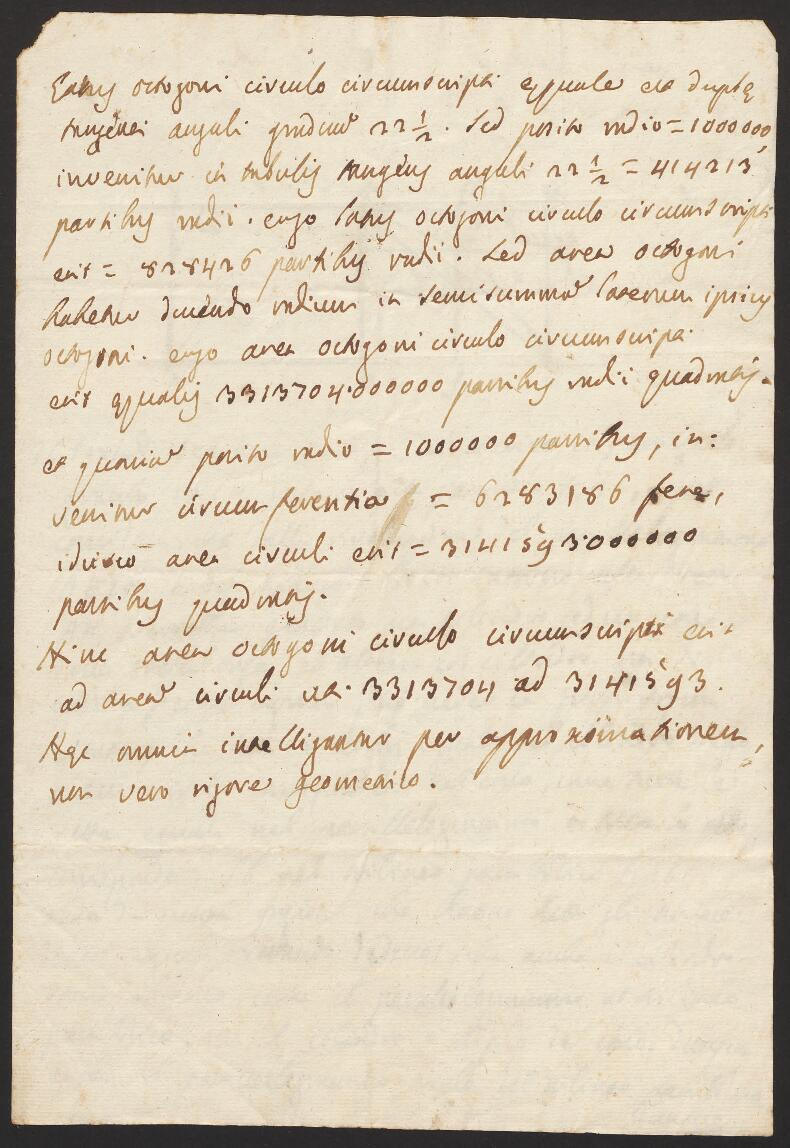 Latus octogoni circulo circumscripti equale est duplę
tangenti anguli graduum 22 1/2. Sed posito radio = 1000000,
invenitur in tabulis tangens anguli 22 1/2 = 414213
partibus radii. ergo latus octogoni circulo circumscripti
erit = 828426 partibus radii. Sed area octogoni
habetur ducendo radium in semisummam laterum ipsius
octogoni. ergo area octogoni circulo circumscripti
erit ęqualis 3313704.000000 partibus radii quadratis.
et quoniam posito radio = 1000000 partibus, in:
venitur circumferentia = 6283186 fere,
idcirco area circuli erit = 3141593.000000
partibus quadratis.
Hinc area octogoni circulo circumscripti erit
ad aream circuli ut. 3313704 ad 3141593.
Hęc omnia intelligantur per approximationem,
non vero rigore geometrico.